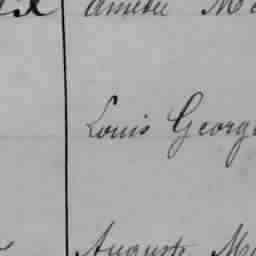 Amédée M
Louis Georg
Auguste M